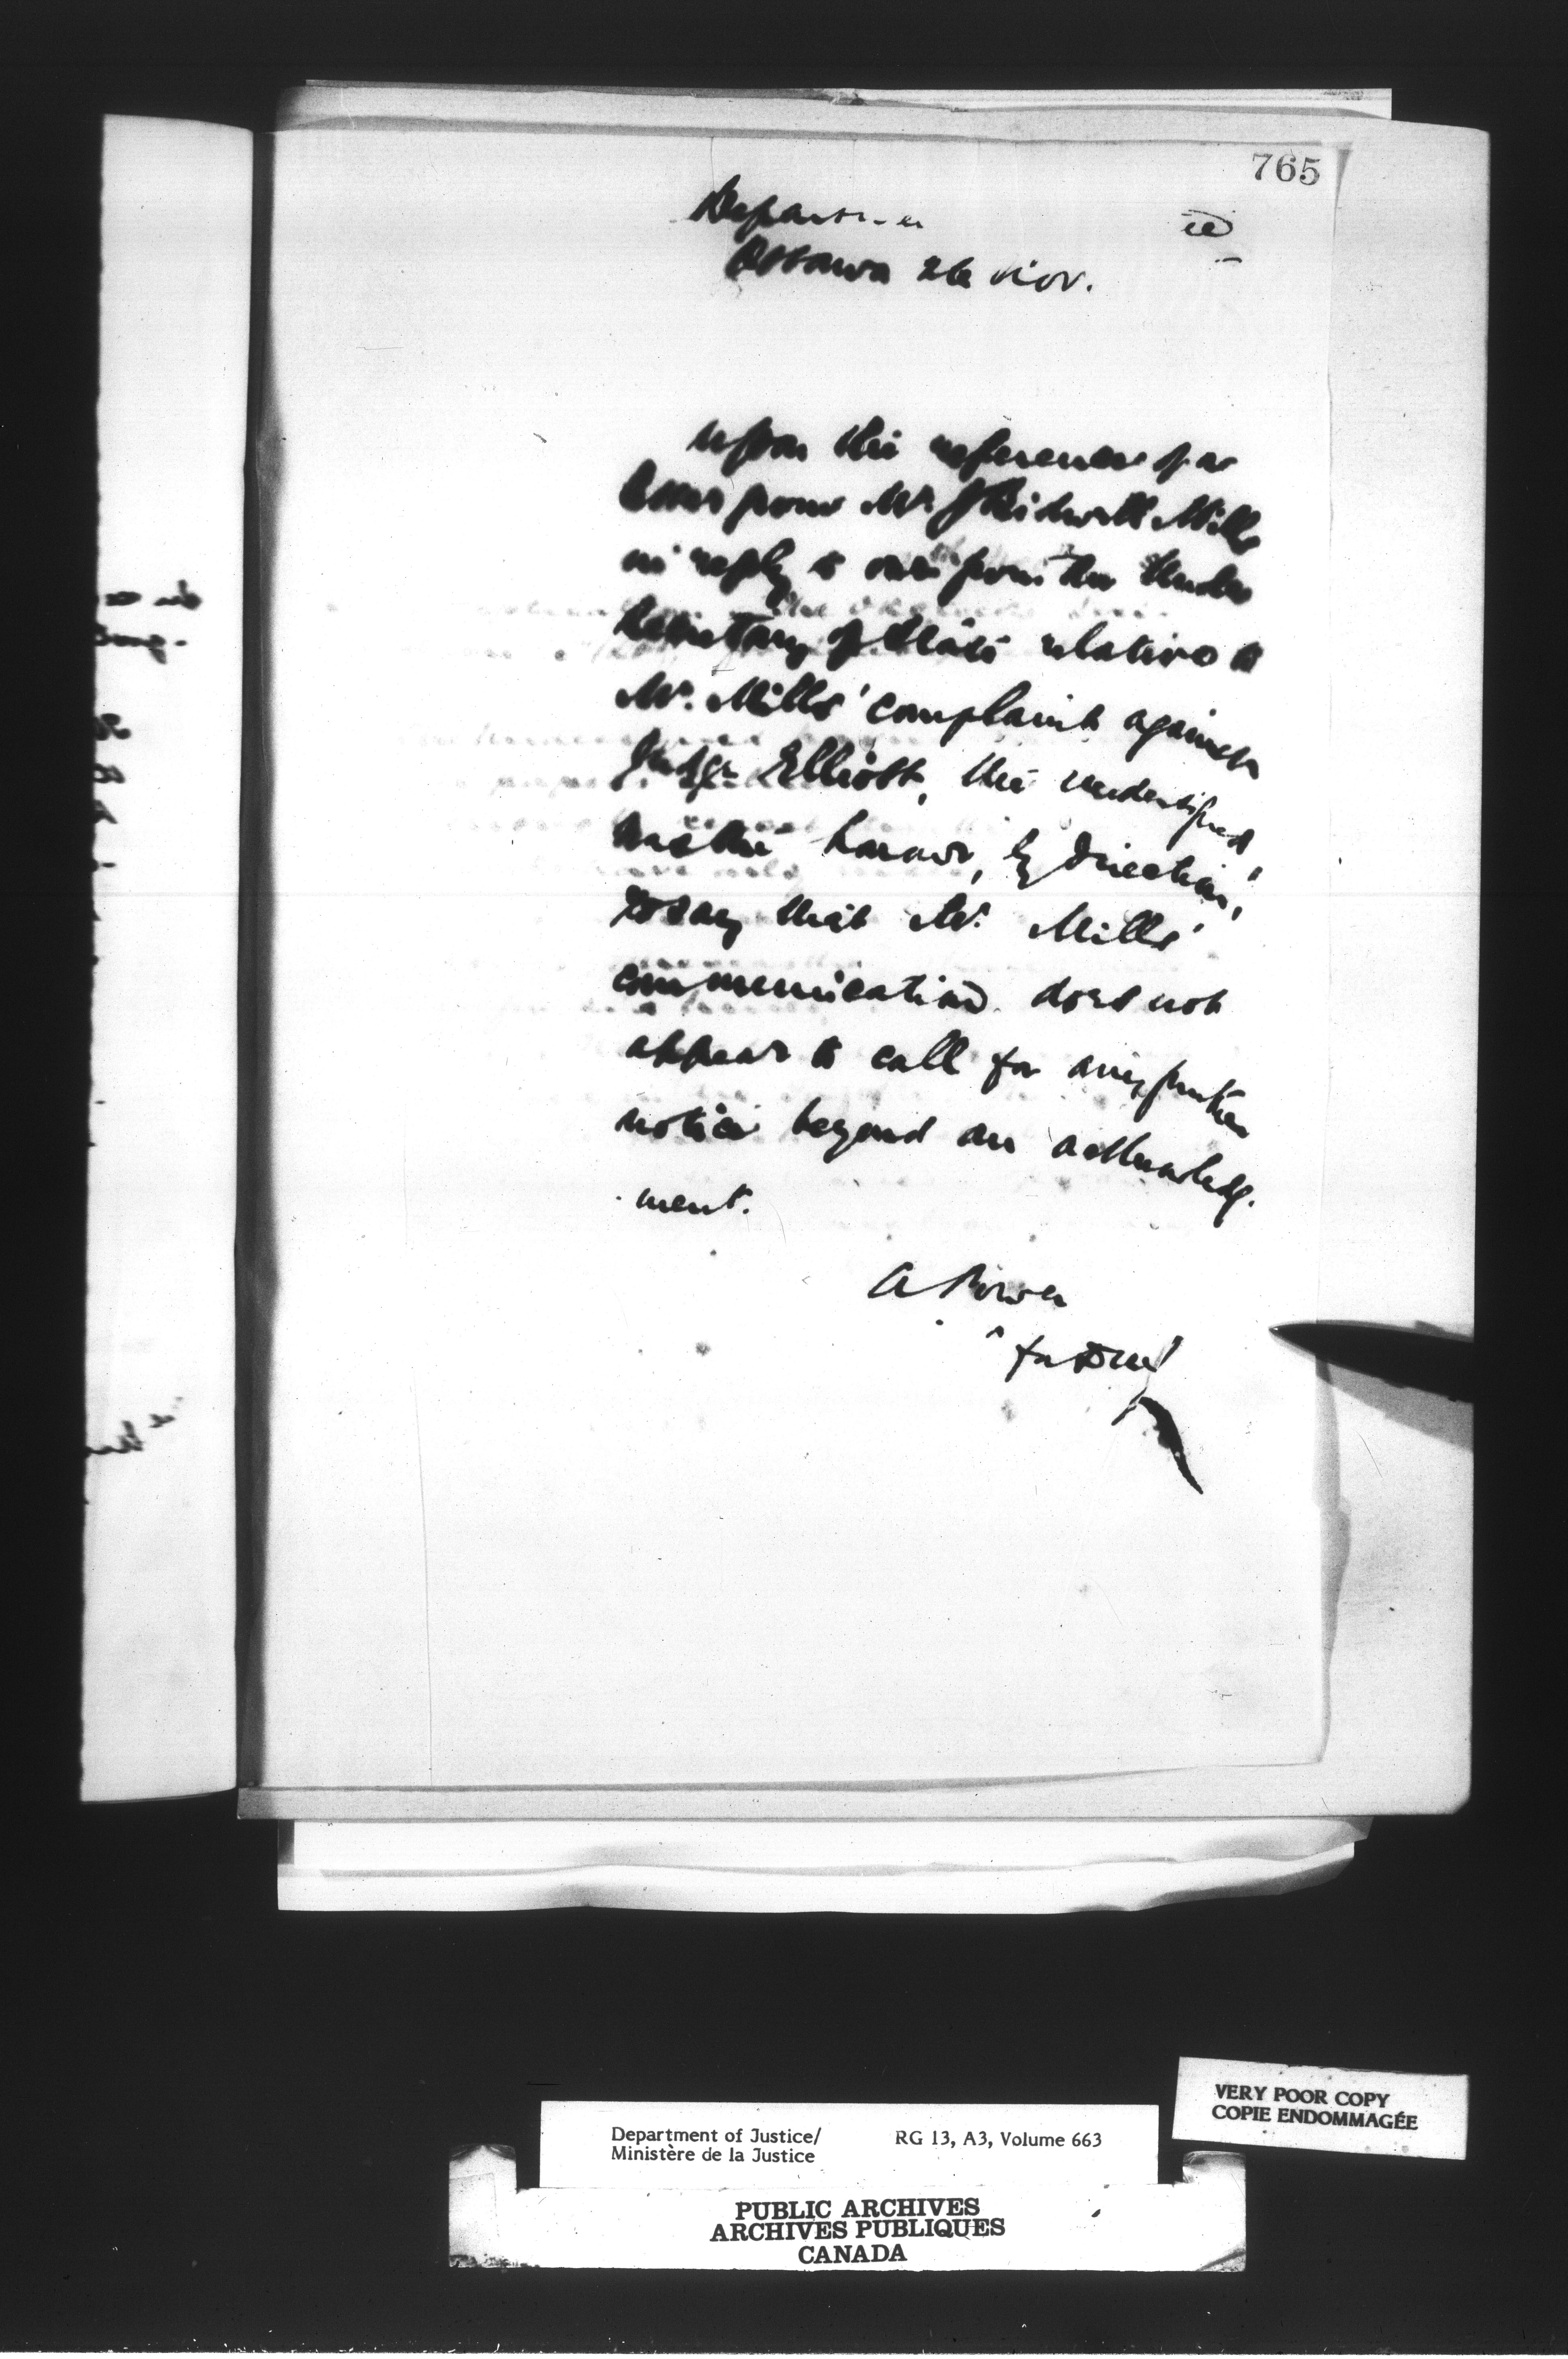 765
Ottawa 26 Nov.
Upon the reference of a
letter from Mr. J Bidwell Mills
in reply to one from the Under
Secretary of State relative to
Mr. Mills' complaint against
Judge Elliott, the undersigned
has the honour, by direction,
to say that Mr. Mills'
communication does not
appear to call for any further
notice beyond an acknowledg-
ment.
A Power
for DMJ
Department of Justice/
Ministère de la Justice
RG 13, A3, Volume 663
VERY POOR COPY
COPIE ENDOMMAGÉE
PUBLIC ARCHIVES
ARCHIVES PUBLIQUES
CANADA